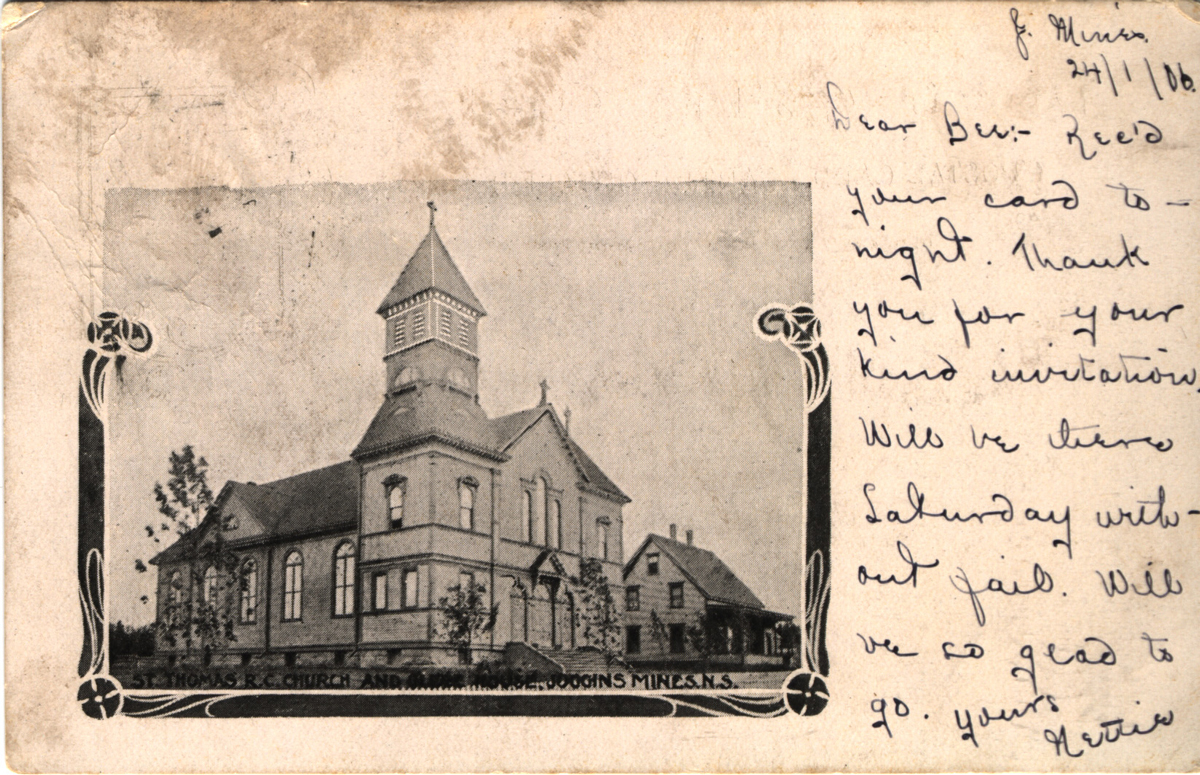 J. Mines.
24/1/06.
Dear Bee:- Rec'd
your card to-
night. Thank
you for your
kind invitation.
Will be there
Saturday with-
out fail. Will
be so glad to
go. yours
Nettie
ST. THOMAS R.C. CHURCH AND GLEBE HOUSE, JOGGINS MINES. N.S.